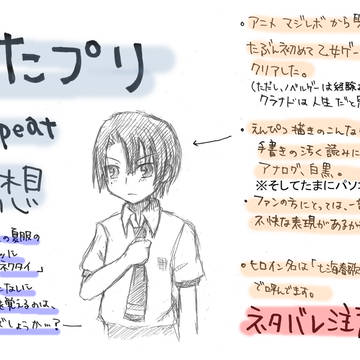 たプリ
peat
想
の夏服の
ネクタイ」
を覚えるのは、
でしょうか…？
・アニメ マジLOVEから
たぶん初めて乙女ゲー
クリアした。
(ただし、ノベルゲーは経験
クラナドは人生だと
・えんぴつ描きのこんな
手書きの汚く読みに
アナログ、白黒。
※そしてたまにパソ
・ファンの方にとっては、一
不快な表現があるか
・ヒロイン名は「七海春歌
で呼んでます。
ネタバレ注